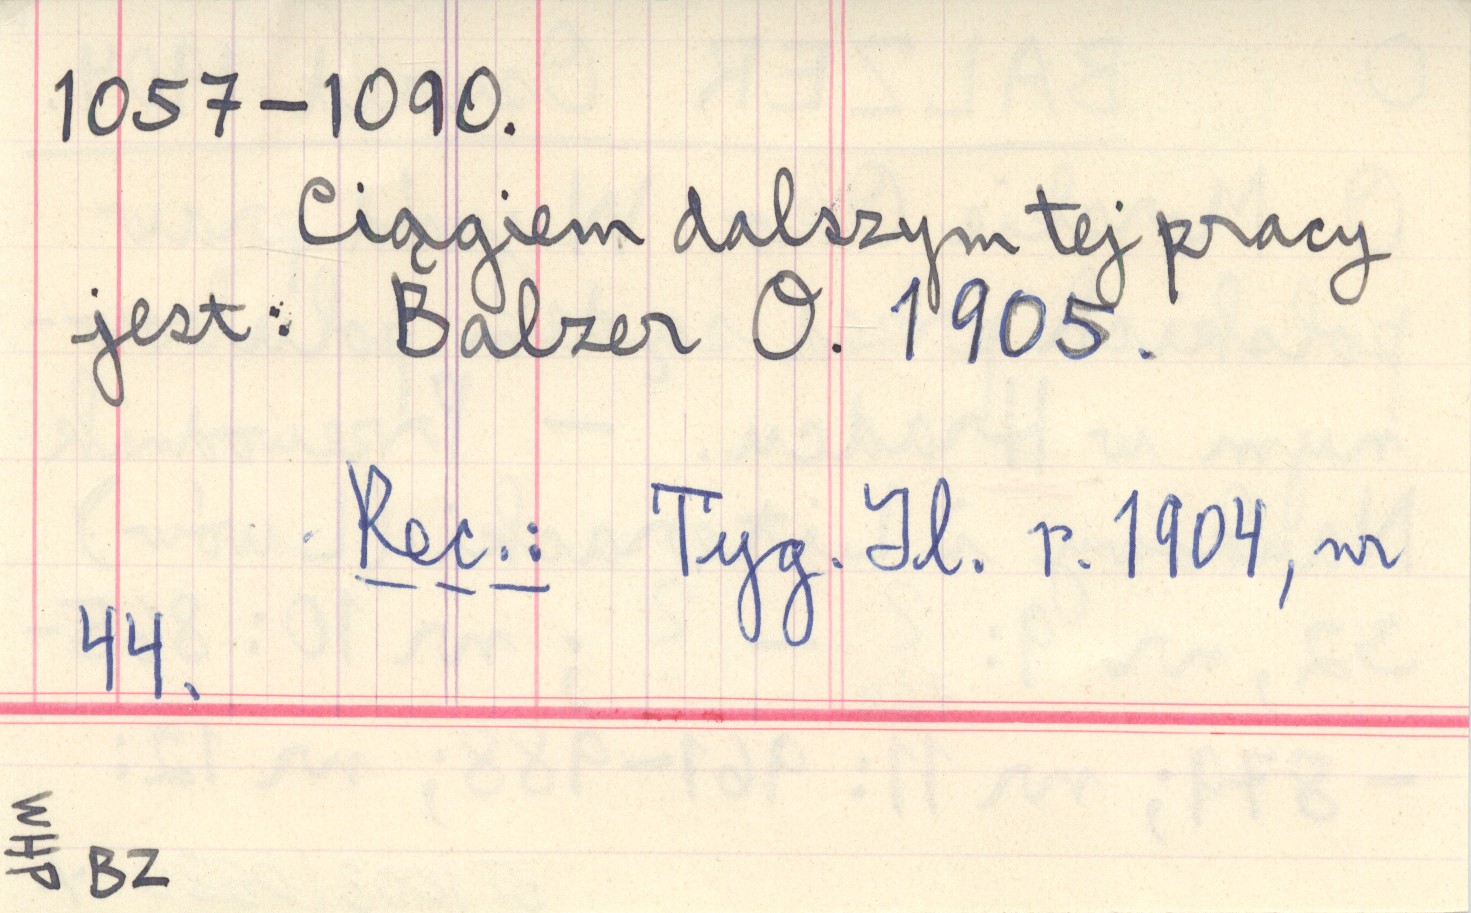 1057-1090.
Ciągiem dalszym tej pracy
jest: Balzer O. 1905.
Rec.: Tyg. Il. r. 1904, nr
44.
WHP
BZ